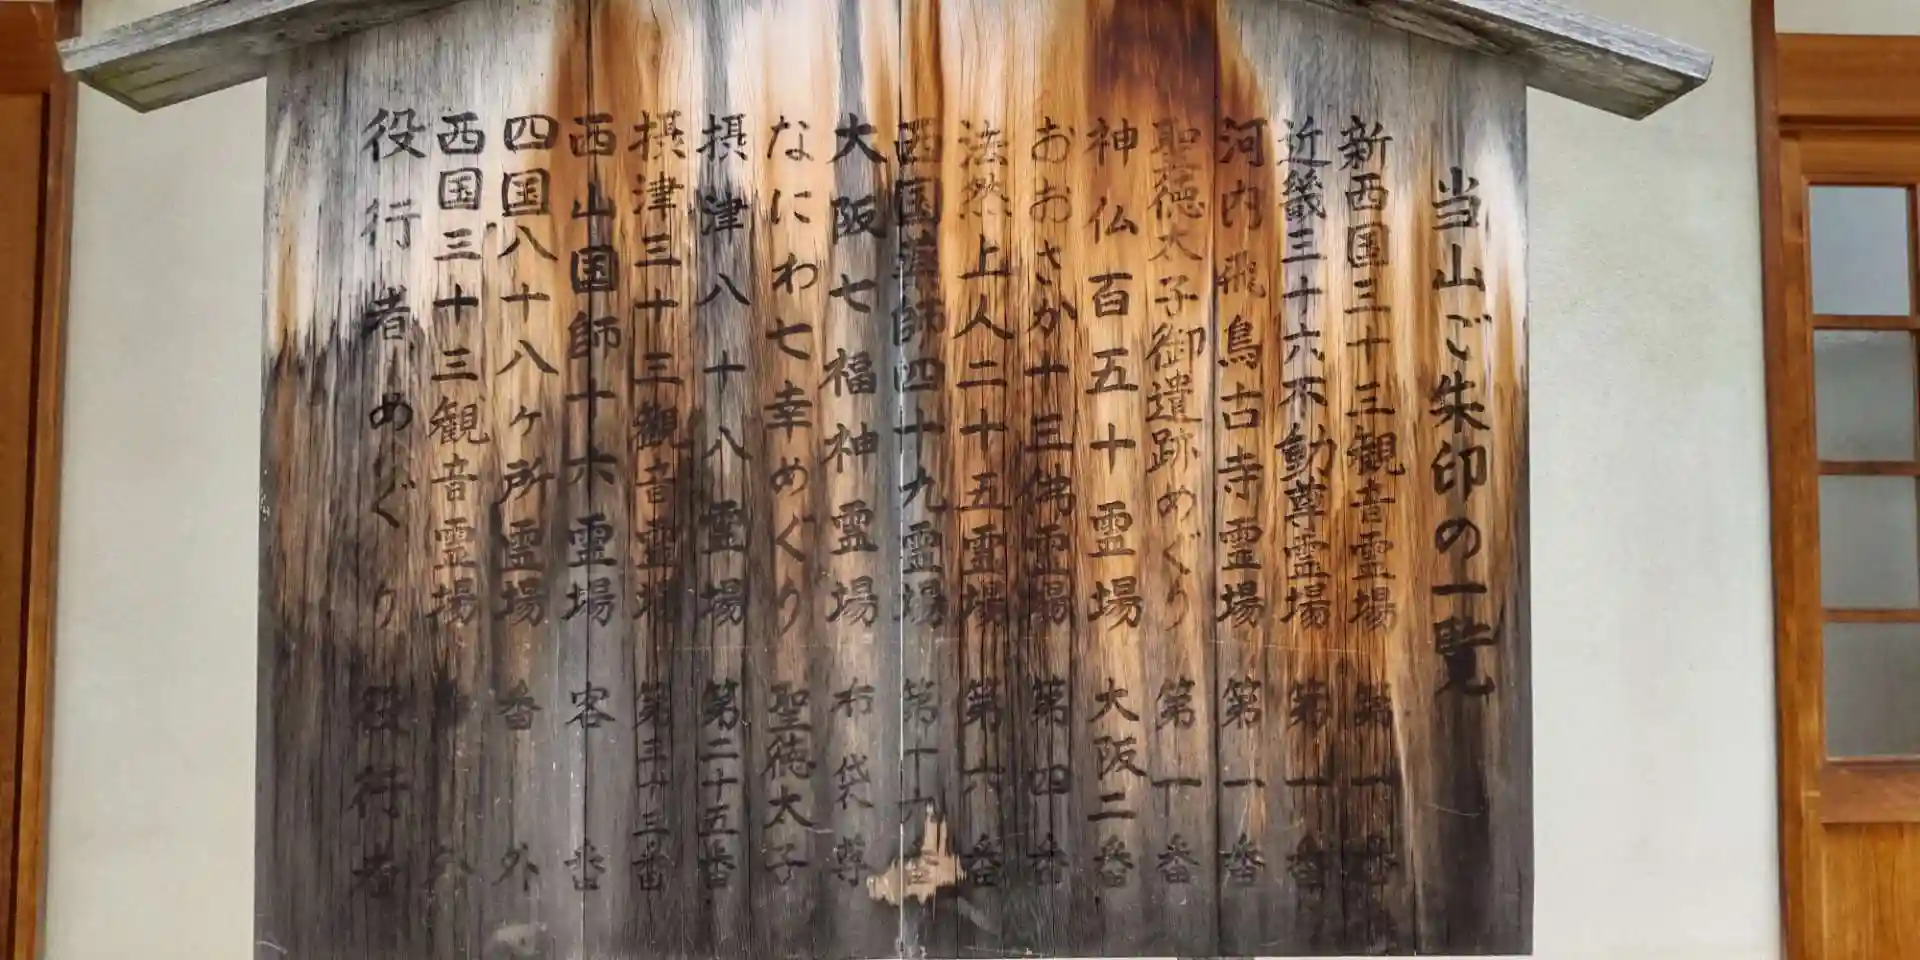 当山ご朱印の一覧
新西国三十三観音霊場 第一番
近畿三十六不動尊霊場 第一番
河内飛鳥古寺霊場 第一番
聖徳太子御遺跡めぐり 第一番
神仏百五十霊場 大阪二番
おおさか十三佛霊場 第四番
法然上人二十五霊場 第六番
西国薬師四十九霊場 第十九番
大阪七福神霊場 布袋尊
なにわ七幸めぐり 聖徳太子
摂津八十八霊場 第二十五番
摂津三十三観音霊場 第三十三番
西山国師十六霊場 客番
四国八十八ヶ所霊場 番外
西国三十三観音霊場 番外
役行者めぐり 役行者